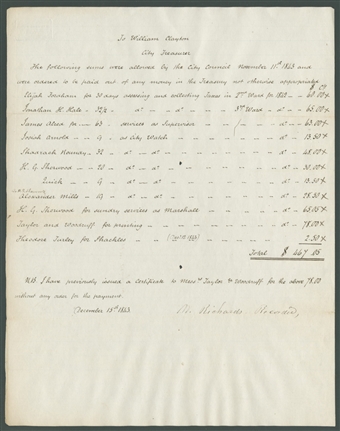 To William Clayton
City Treasurer
The following sums were allowed by the City Council November 11th 1843 and
were ordered to be paid out of any money in the Treasury not otherwise appropriated
Elijah Fordham for 30 days assessing and collecting Taxes in 2nd Ward for 1843 — 60.00
Jonathan H. Hale — 32½ — do — do — do — 3rd Ward — do — 65.00
James Allred for — 63 — services as Supervisor — do — 63.00
Josiah Arnold — 9 — as City Watch — do — 13.50
Shadrach Roundy — 32 — do — do — do — 48.00
H. G. Sherwood — 20 — do — do — do — 30.00
9 — do — do — do — 13.50
Alexander Mills — 19 — do — do — do — 28.50
H. G. Sherwood for sundry services as Marshall — do — 68.05
Taylor and Woodruff for printing — do — 78.00
Theodore Turley for Shackles — 2.50
Total $ 467.05
NB. I have previously issued a certificate to Messrs Taylor & Woodruff for the above 78.00
without any order for the payment.
December 18th 1843
W. Richards, Recorder,